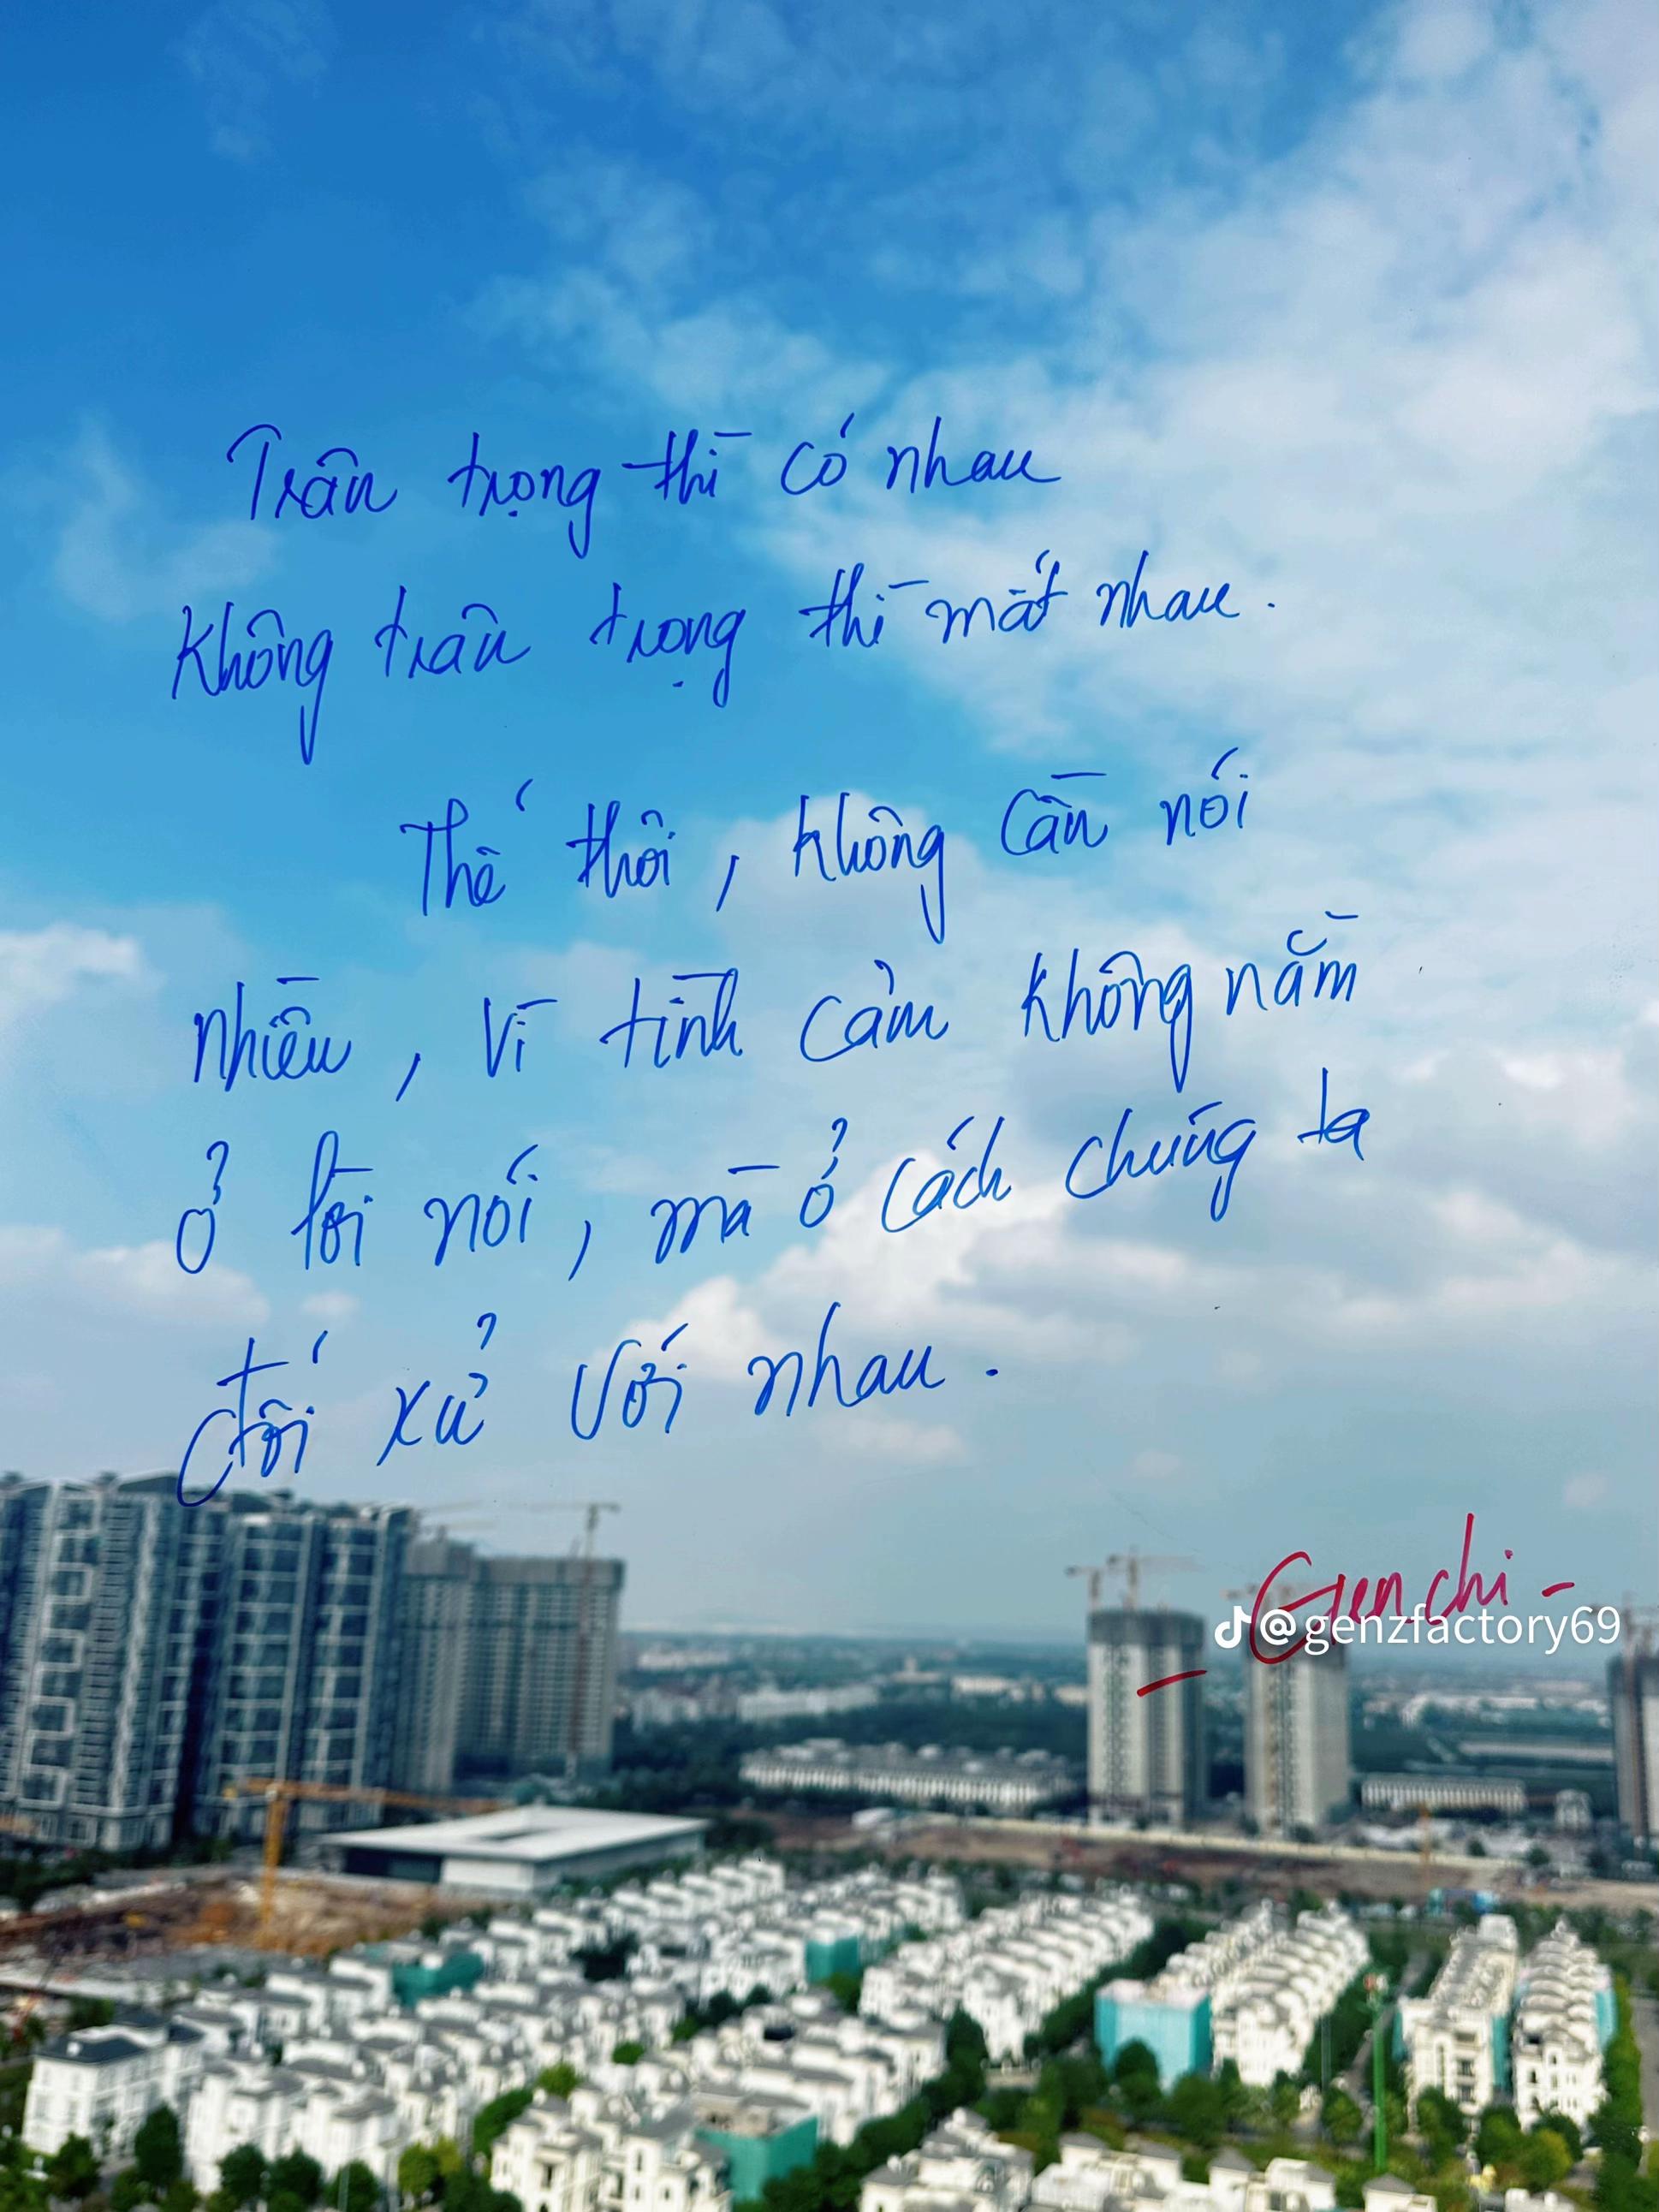 Trân trọng thì có nhau
Không trân trọng thì mất nhau.
Thế thôi, không cần nói
nhiều, vì tình cảm không nằm
ở lời nói, mà ở cách chúng ta
đối xử với nhau.
- Genchi -
@genzfactory69